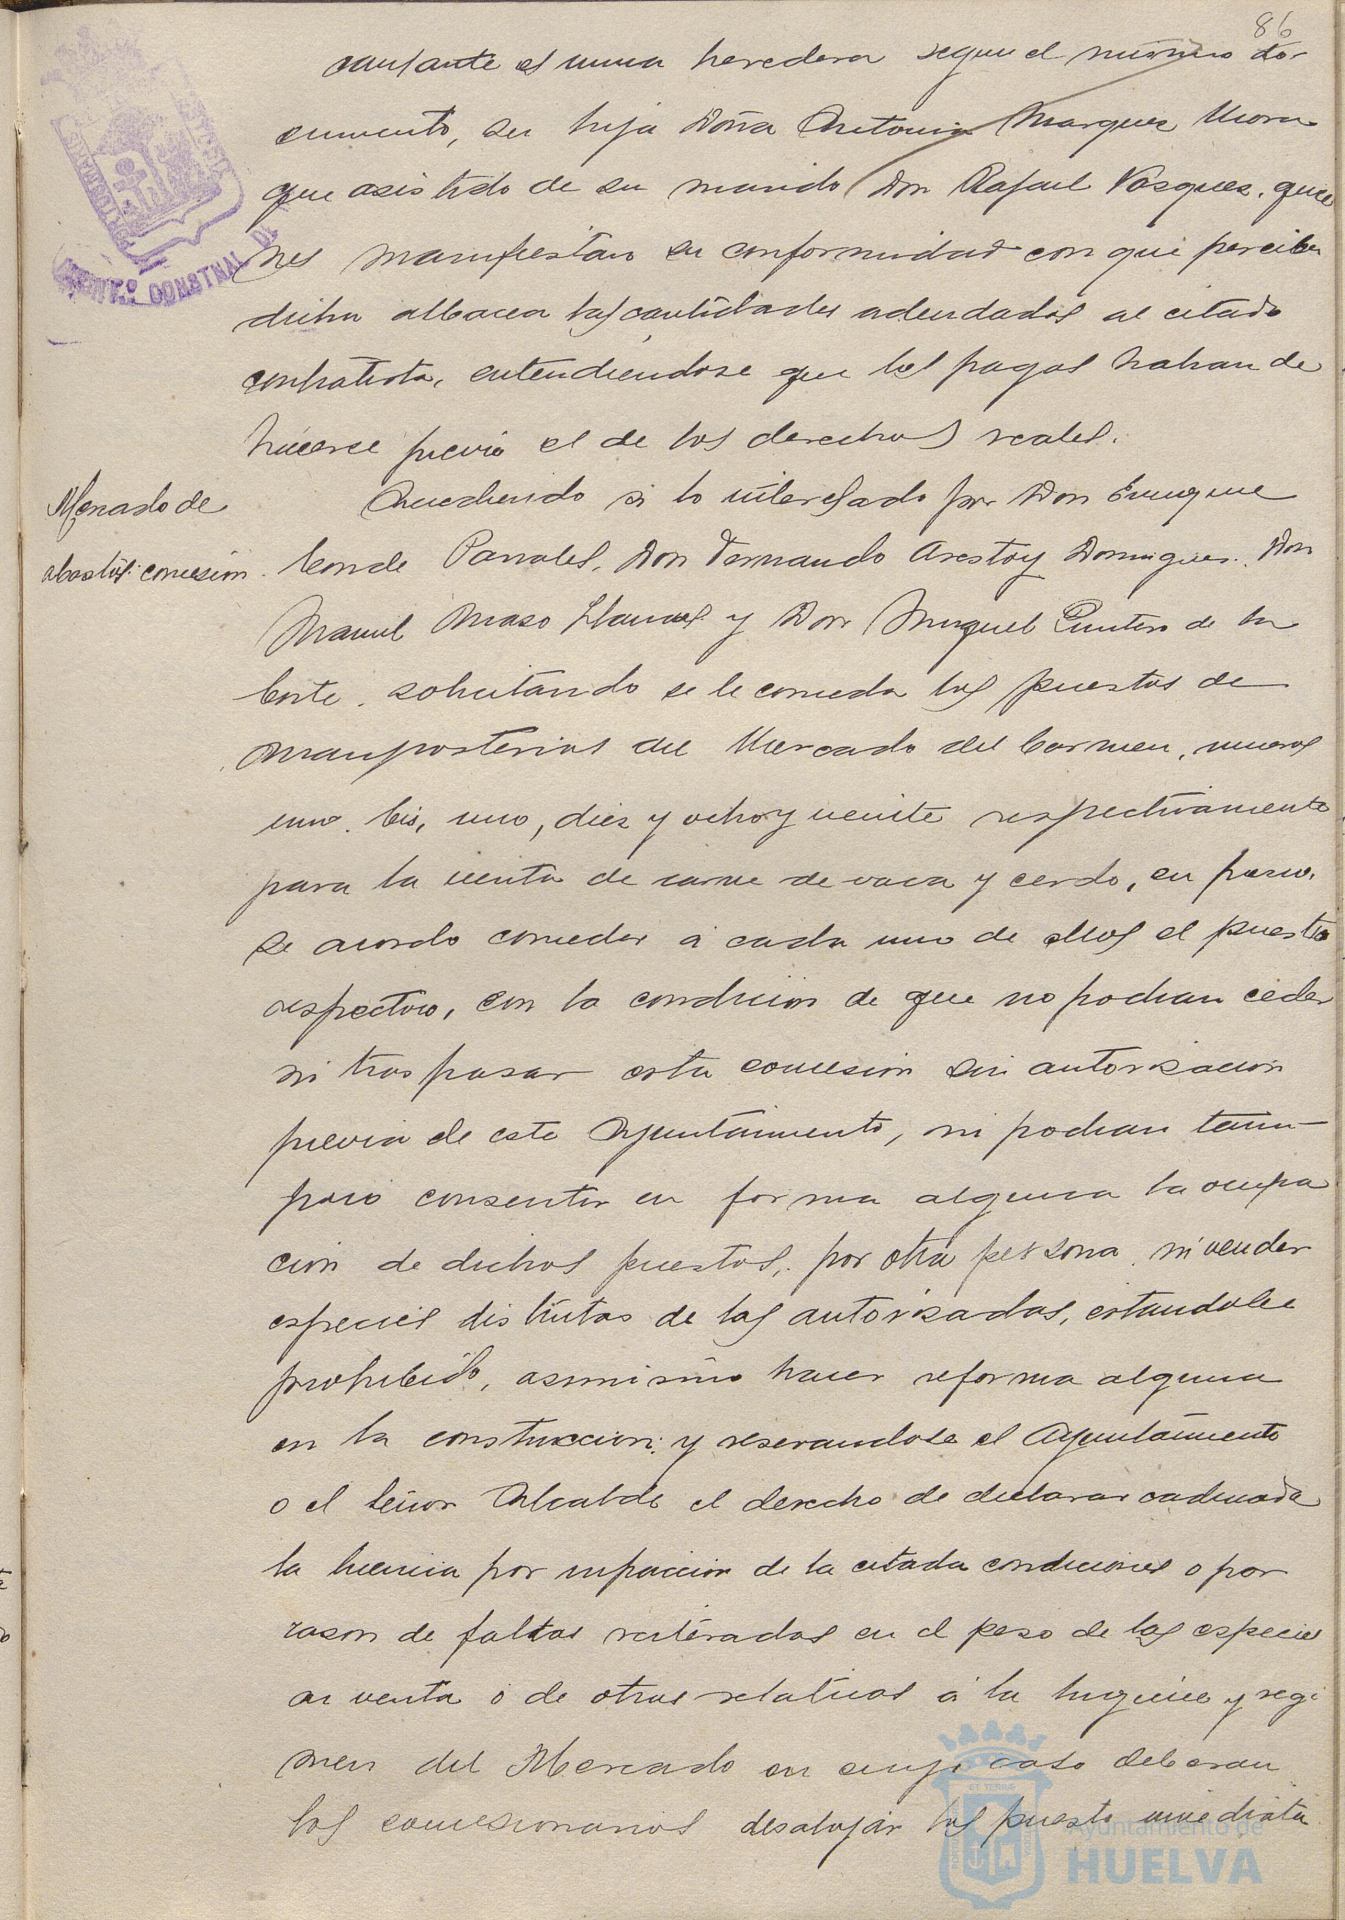 86
causante es unica heredera segun el mismo do-
cumento, su hija Doña Antonia Marquez Mora
que asistido de su marido Don Rafael Vasquez, quie
nes manifiestan su conformidad con que perciba
dicha albacea las cantidades adeudadas al citado
contratista, entendiendose que los pagos habran de
hacerse previo el de los derechos reales.
Mercado de
abastos: concesion.
Accediendo a lo interesado por Don Enrique
Conde Parrales, Don Fernando Arestoy Dominguez, Don
Manuel Maso Llamas y Don Miguel Quintero de la
Corte, solicitando se le conceda los puestos de
mamposterias del Mercado del Carmen, numeros
uno bis, uno, diez y ocho y veinte respectivamente
para la venta de carne de vaca y cerdo, en
se acordo conceder á cada uno de ellos el puesto
respectivo, con la condicion de que no podran ceder
ni traspasar esta concesion sin autorizacion
previa de este Ayuntamiento, ni podran tam-
poco consentir en forma alguna la ocupa
cion de dichos puestos, por otra persona, ni vender
especies distintas de las autorizadas, estandole
prohibido, asimismo hacer reforma alguna
en la construccion; y reservandose el Ayuntamiento
o el Señor Alcalde el derecho de declarar caducada
la licencia por infraccion de la citada condiciones o por
razon de faltas reiteradas en el peso de las especies
en venta o de otras relativas á la higiene y regi
men del Mercado en cuyo caso deberan
los concesionarios desalojar los puesto inmediata
Ayuntamiento de
HUELVA